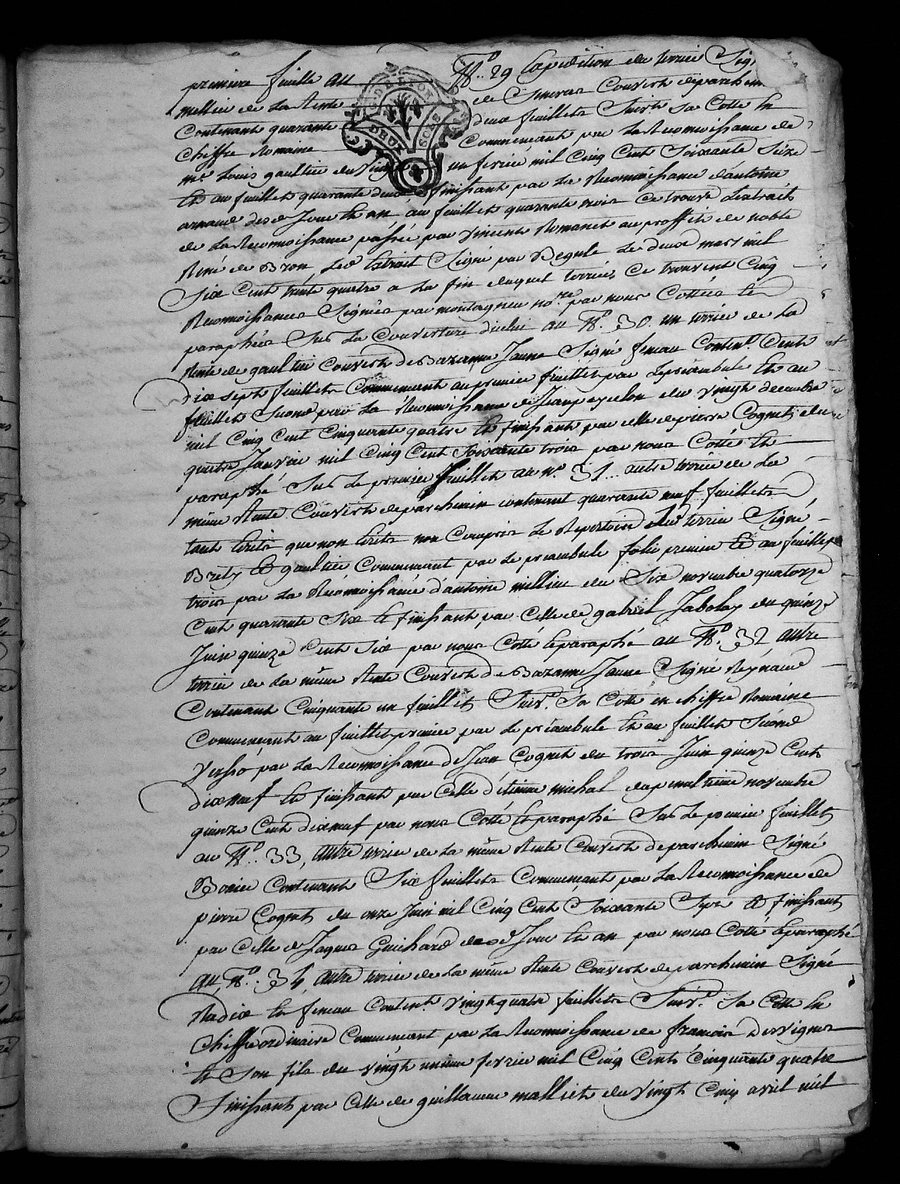 premier feuillet au N.o 29 Expedition du terrier Sig
mellieu de La Rente de Smeras Couvert de parchem
Contenant quarante deux feuillets Suivt Sa Cotte en
Chiffre Romaine Commencant par La Reconnoissance de
me Louis gaultier du vingt un fevrier mil Cinq Cent Soixante Seize
et au feuillet quarante deux finissant par La Reconnoissance d'antoine
arnaud des d Jour et an au feuillet quarante trois Ce trouve L'extrait
de La Reconnoissance passée par vincent Romanet au proffit de noble
René de Bron, Led Extrait Signé par Begule Le deux mars mil
Six Cent trente quatre a La fin duquel terrier Ce trouvent Cinq
Reconnoissances Signées par montagneu nore par nous Cottées et
paraphées Sur La Couverture d'icelui au No. 30. un terrier de La
Rente de gaultier Couvert de Bazanne Jaune Signé feneau Content Cent
dix sept feuillets Commencent au premier feuillet par Le préambule Et au
feuillet Second par La Reconnoissance de Jean peyzelon du vingt decembre
mil Cinq Cent Cinquante quatre et finissant par celle de pierre Cognet du
quatre Janvier mil Cinq Cent Soixante trois par nous Cotté et
paraphé Sur Le premier feuillet au no. 31. autre terrier de La
même Rente Couvert de parchemin contenant quarante neuf feuillets
tant Ecrits que non Ecrits non Compris Le Repertoire dud terrier Signé
Brely et gaultier Commencent par Le preambule folio premier Et au feuillet
trois par La Reconnoissance d'antoine millieu du Six novembre quatorze
Cent quarante Six et finissant par Celle de gabriel Jabolay du quinze
Juin quinze Cent Six par nous Cotté et paraphé au No. 32 autre
terrier de La même Rente Couvert de Bazanne Jaune Signé Reynaud
Contenant Cinquante un feuillets Suivt. Sa Cotte en chiffre Romaine
Commencant au feuillet premier par Le préambule et au feuillet Second
Verso par La Reconnoissance de Jean Cognet du trois Juin quinze Cent
dix neuf et finissant par Celle d'étienne michal du penultieme novembre
quinze Cent dix neuf par nous Cotté et paraphé Sur Le premier feuillet
au No. 33, autre terrier de La même Rente Couvert de parchemin Signé
Contenant Six feuillets Commencents par La Reconnoissance de
pierre Cognet du onze Juin mil Cinq Cent Soixante Sept Et finissant
par Celle de Jaques Guichard des d Jour et an par nous Cotté et paraphé
au No. 34 autre terrier de La même Rente Couvert de parchemin Signé
Nadix et feneau Content. vingt quatre feuillets Suivt. Sa Cotte en
Chiffre ordinaire Commencent par La Reconnoissance de francois desvignes
et Son fils du vingt unieme fevrier mil Cinq Cent Cinquante quatre
finissant par Celle de guillaume malliet du vingt Cinq avril mil